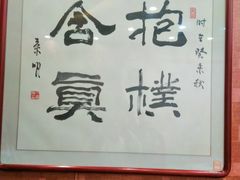 时在癸未秋
抱樸
含真